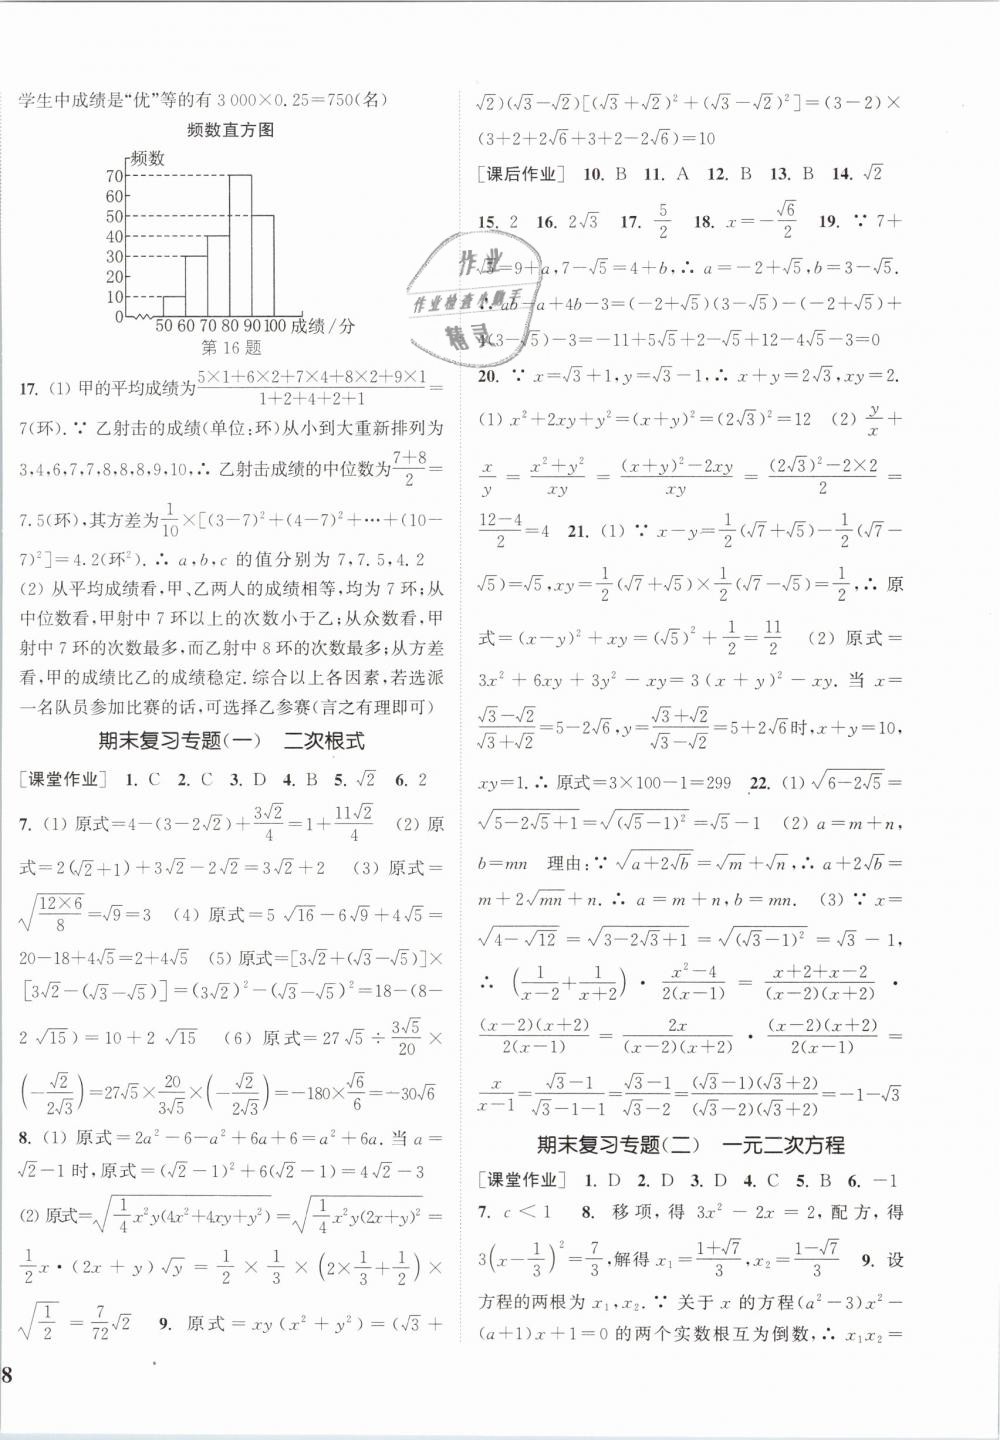 学生中成绩是“优”等的有 3 000×0.25=750(名)
频数直方图
频数
70
60
50
40
30
20
10
0
50 60 70 80 90 100 成绩/分
第 16 题
17. (1) 甲的平均成绩为(5×1+6×2+7×4+8×2+9×1)/(1+2+4+2+1)=
7(环).∵ 乙射击的成绩(单位:环)从小到大重新排列为
3,4,6,7,7,8,8,8,9,10,∴ 乙射击成绩的中位数为(7+8)/2=
7.5(环),其方差为1/10×[(3-7)²+(4-7)²+…+(10-
7)²]=4.2(环²).∴ a,b,c 的值分别为 7,7.5,4.2
(2) 从平均成绩看,甲、乙两人的成绩相等,均为 7 环;从
中位数看,甲射中 7 环以上的次数小于乙;从众数看,甲
射中 7 环的次数最多,而乙射中 8 环的次数最多;从方差
看,甲的成绩比乙的成绩稳定.综合以上各因素,若选派
一名队员参加比赛的话,可选择乙参赛(言之有理即可)
期末复习专题(一) 二次根式
[课堂作业] 1. C 2. C 3. D 4. B 5. √2 6. 2
7. (1) 原式=4-(3-2√2)+3√2/4=1+11√2/4 (2) 原
式=2(√2+1)+3√2-2√2=3√2+2 (3) 原式=
√(12×6/8)=√9=3 (4) 原式=5 √16-6√9+4√5=
20-18+4√5=2+4√5 (5) 原式=[3√2+(√3-√5)]×
[3√2-(√3-√5)]=(3√2)²-(√3-√5)²=18-(8-
2 √15)=10+2 √15 (6) 原式=27√5÷3√5/20×
(-√2/2√3)=27√5×20/3√5×(-√2/2√3)=-180×√6/6=-30√6
8. (1) 原式=2a²-6-a²+6a+6=a²+6a.当 a=
√2-1 时,原式=(√2-1)²+6(√2-1)=4√2-3
(2) 原式=√(1/4x²y(4x²+4xy+y²))=√(1/4x²y(2x+y)²)=
1/2x•(2x+y)√y=1/2×1/3×(2×1/3+1/2)×
√(1/2)=7/72√2 9. 原式=xy(x²+y²)=(√3+
8
√2)(√3-√2)[(√3+√2)²+(√3-√2)²]=(3-2)×
(3+2+2√6+3+2-2√6)=10
[课后作业] 10. B 11. A 12. B 13. B 14. √2
15. 2 16. 2√3 17. 5/2 18. x=-√6/2 19. ∵ 7+
√5=9+a,7-√5=4+b,∴ a=-2+√5,b=3-√5.
∴ ab-a+4b-3=(-2+√5)(3-√5)-(-2+√5)+
4(3-√5)-3=-11+5√5+2-√5+12-4√5-3=0
20. ∵ x=√3+1,y=√3-1,∴ x+y=2√3,xy=2.
(1) x²+2xy+y²=(x+y)²=(2√3)²=12 (2) y/x+
x/y=(x²+y²)/xy=((x+y)²-2xy)/xy=((2√3)²-2×2)/2=
(12-4)/2=4 21. (1) ∵ x-y=1/2(√7+√5)-1/2(√7-
√5)=√5,xy=1/2(√7+√5)×1/2(√7-√5)=1/2,∴ 原
式=(x-y)²+xy=(√5)²+1/2=11/2 (2) 原式=
3x²+6xy+3y²-xy=3(x+y)²-xy.当 x=
(√3-√2)/(√3+√2)=5-2√6,y=(√3+√2)/(√3-√2)=5+2√6时,x+y=10,
xy=1.∴ 原式=3×100-1=299 22. (1) √(6-2√5)=
√(5-2√5+1)=√((√5-1)²)=√5-1 (2) a=m+n,
b=mn 理由:∵ √(a+2√b)=√m+√n,∴ a+2√b=
m+2√mn+n.∴ a=m+n,b=mn. (3) ∵ x=
√(4-√12)=√(3-2√3+1)=√((√3-1)²)=√3-1,
∴ (1/(x-2)+1/(x+2))•(x²-4)/(2(x-1))=(x+2+x-2)/((x-2)(x+2))•
((x-2)(x+2))/(2(x-1))=2x/((x-2)(x+2))•((x-2)(x+2))/(2(x-1))=
x/(x-1)=(√3-1)/(√3-1-1)=(√3-1)/(√3-2)=((√3-1)(√3+2))/((√3-2)(√3+2))=-1-√3
期末复习专题(二) 一元二次方程
[课堂作业] 1. D 2. D 3. D 4. C 5. B 6. -1
7. c<1 8. 移项,得 3x²-2x=2,配方,得
3(x-1/3)²=7/3,解得 x₁=(1+√7)/3,x₂=(1-√7)/3 9. 设
方程的两根为 x₁,x₂.∵ 关于 x 的方程(a²-3)x²-
(a+1)x+1=0 的两个实数根互为倒数,∴ x₁x₂=
作业
作业检查小助手
精灵